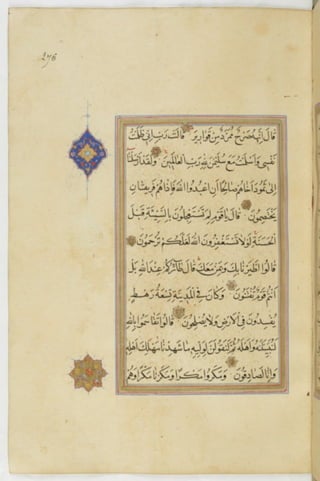 276
قَالَ إِنَّهُ صَرْحٌ مُمَرَّدٌ مِنْ قَوَارِيرَ قَالَتْ رَبِّ إِنِّي ظَلَمْتُ
نَفْسِي وَأَسْلَمْتُ مَعَ سُلَيْمٰنَ لِلّٰهِ رَبِّ الْعَالَمِينَ وَلَقَدْ أَرْسَلْنَا
إِلَىٰ ثَمُودَ أَخَاهُمْ صَالِحًا أَنِ اعْبُدُوا اللّٰهَ فَإِذَا هُمْ فَرِيقَانِ
يَخْتَصِمُونَ قَالَ يَا قَوْمِ لِمَ تَسْتَعْجِلُونَ بِالسَّيِّئَةِ قَبْلَ
الْحَسَنَةِ لَوْلَا تَسْتَغْفِرُونَ اللّٰهَ لَعَلَّكُمْ تُرْحَمُونَ
قَالُوا اطَّيَّرْنَا بِكَ وَبِمَنْ مَعَكَ قَالَ طَائِرُكُمْ عِنْدَ اللّٰهِ بَلْ
أَنْتُمْ قَوْمٌ تُفْتَنُونَ وَكَانَ فِي الْمَدِينَةِ تِسْعَةُ رَهْطٍ
يُفْسِدُونَ فِي الْأَرْضِ وَلَا يُصْلِحُونَ قَالُوا تَقَاسَمُوا بِاللّٰهِ
لَنُبَيِّتَنَّهُ وَأَهْلَهُ ثُمَّ لَنَقُولَنَّ لِوَلِيِّهِ مَا شَهِدْنَا مَهْلِكَ أَهْلِهِ
وَإِنَّا لَصَادِقُونَ وَمَكَرُوا مَكْرًا وَمَكَرْنَا مَكْرًا وَهُمْ